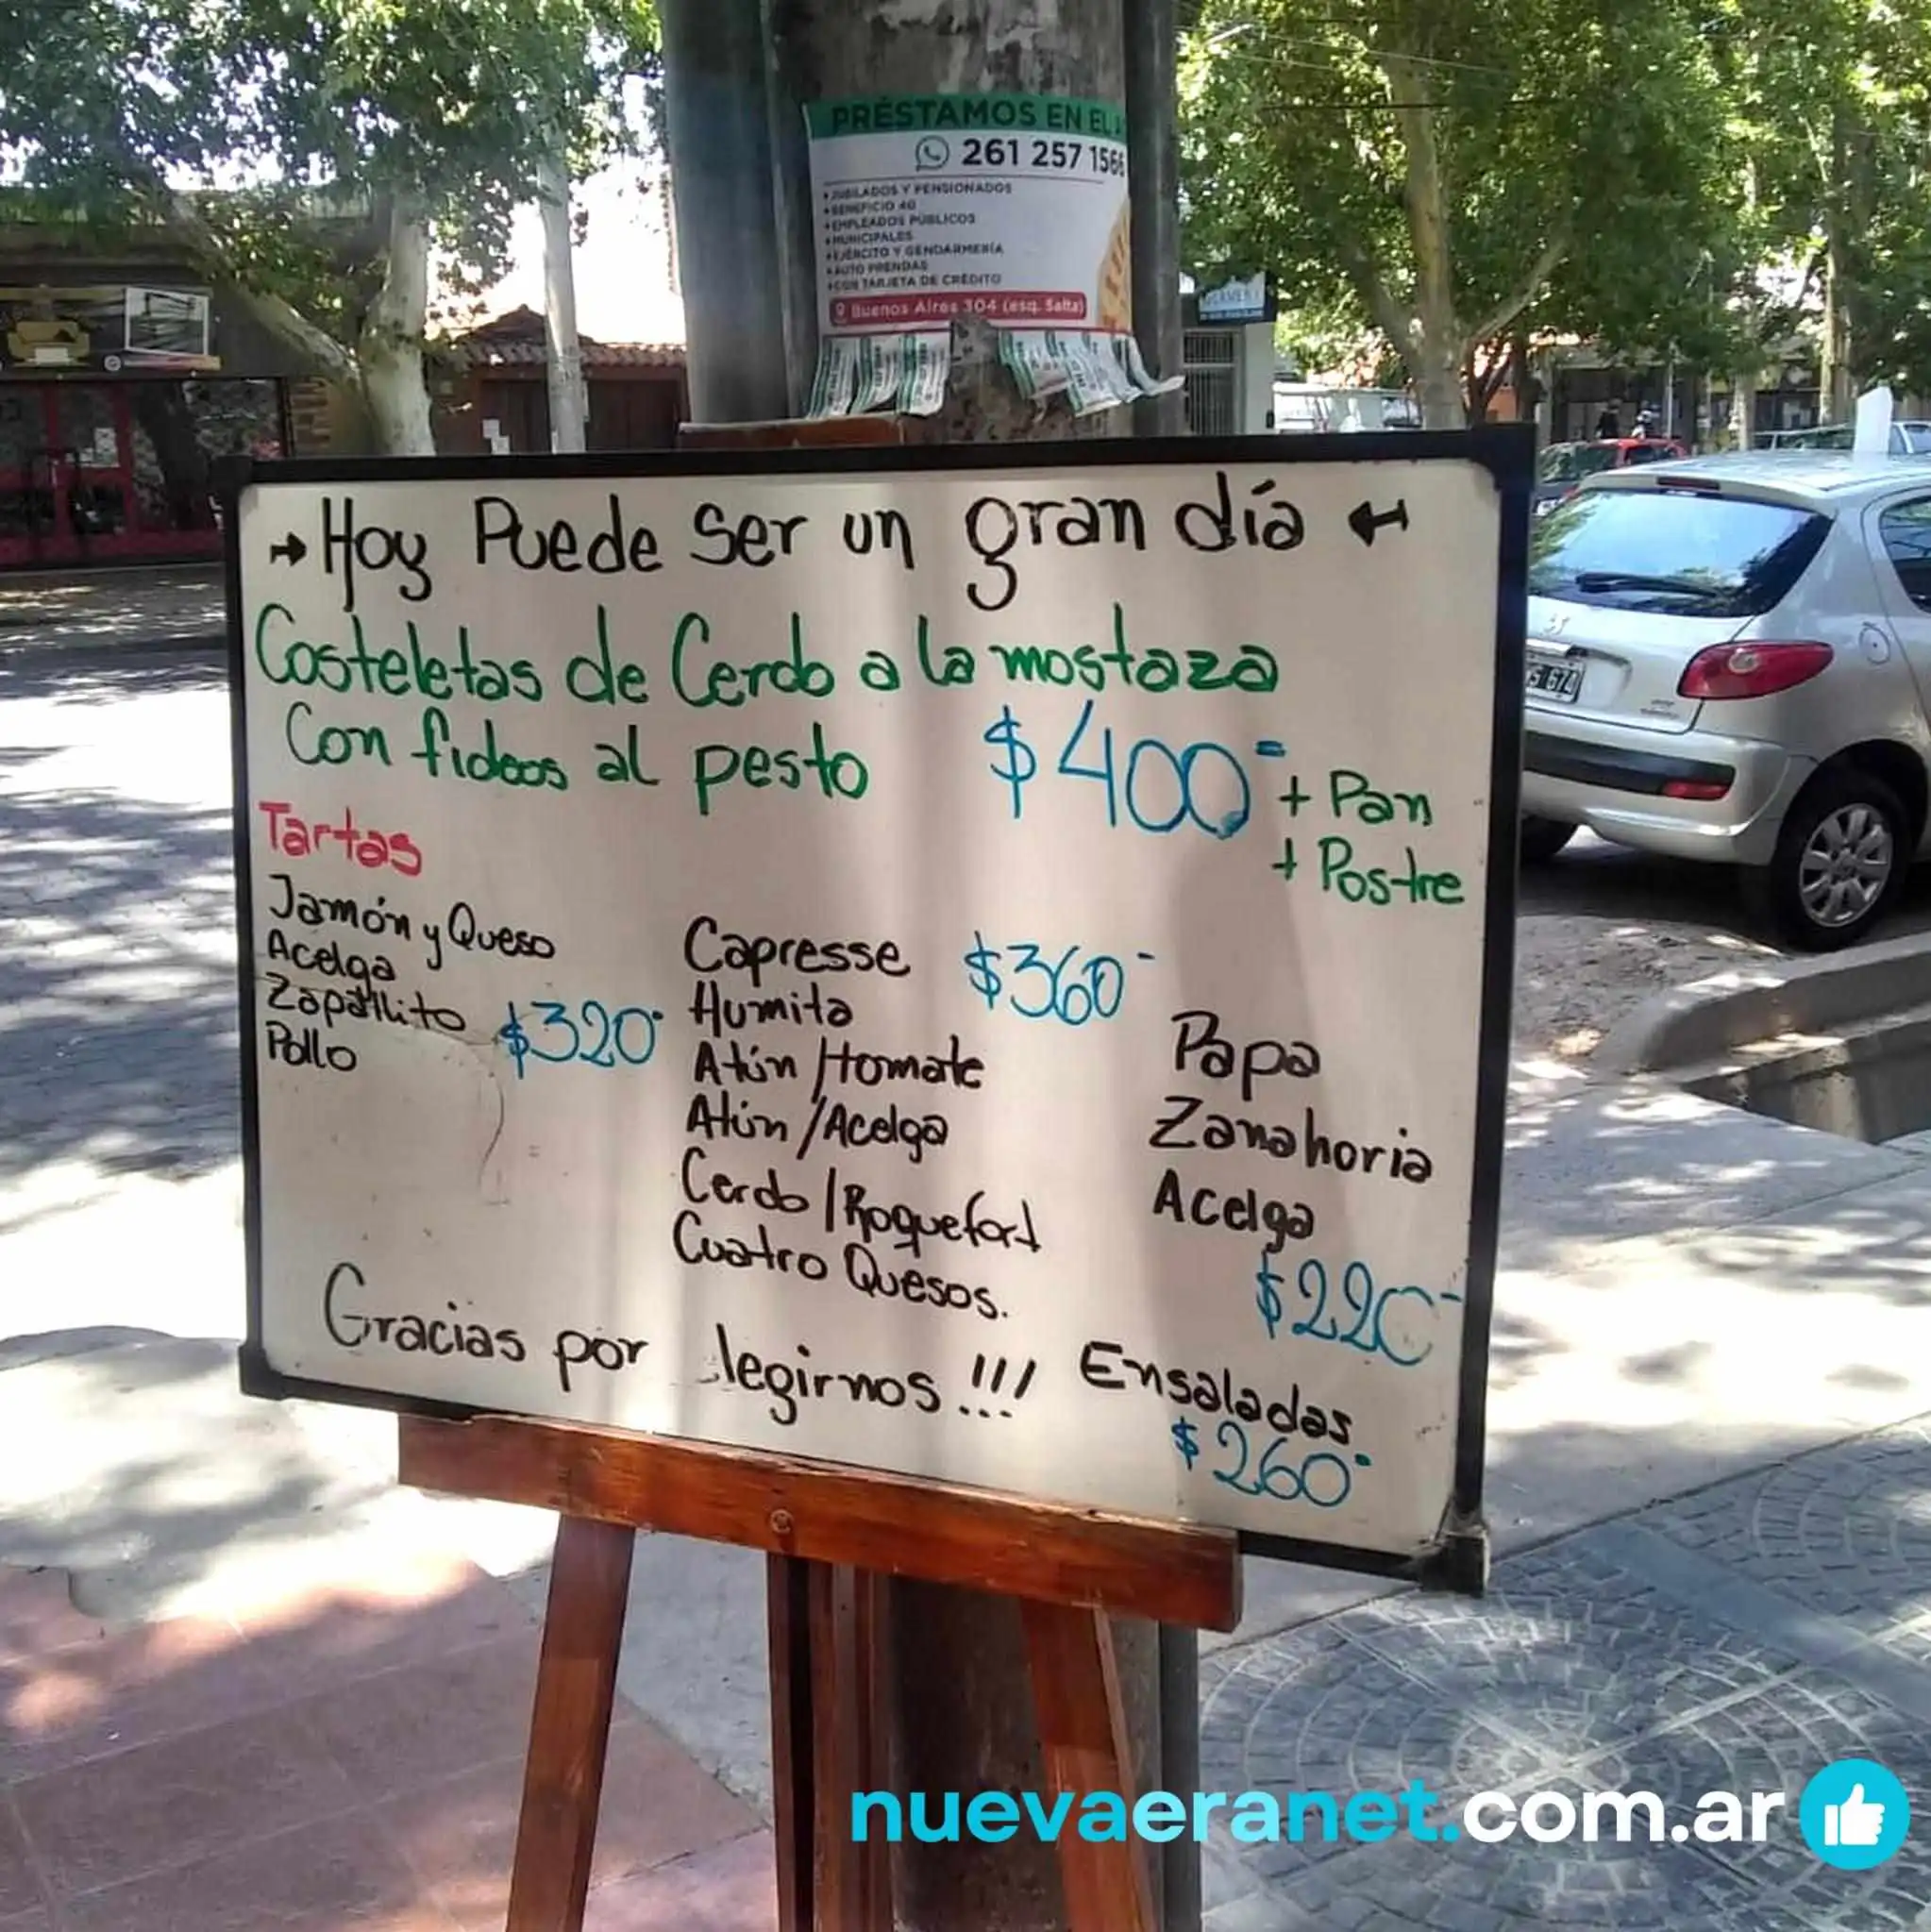 PRÉSTAMOS EN EL
261 257 1566
• JUBILADOS Y PENSIONADOS
• BENEFICIO 4G
• EMPLEADOS PÚBLICOS
• MUNICIPALES
• EJÉRCITO Y GENDARMERÍA
• AUTO PRENDAS
• CON TARJETA DE CRÉDITO
Buenos Aires 304 (esq. Salta)
→ Hoy Puede Ser un gran día ←
Costeletas de Cerdo a la mostaza
Con fideos al pesto $400=
+ Pan
+ Postre
Tartas
Jamón y Queso
Acelga
Zapallito
Pollo
$320
Capresse
Humita
Atún/tomate
Atún/Acelga
Cerdo/Roquefort
Cuatro Quesos.
$360-
Papa
Zanahoria
Acelga
$220-
Gracias por legirnos!!!
Ensaladas
$260
nuevaeranet.com.ar